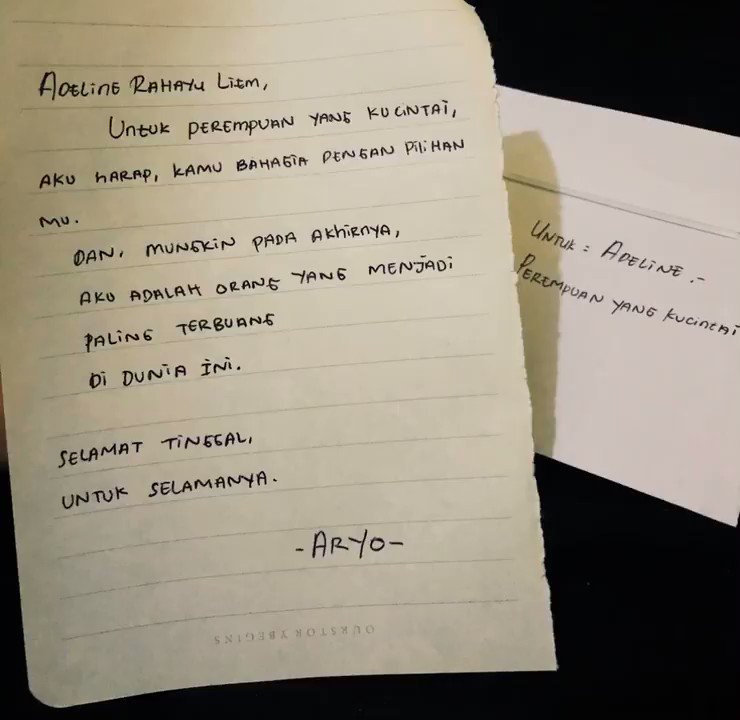 ADELINE RAHAYU LIEM,
UNTUK PEREMPUAN YANG KUCINTAI,
AKU HARAP, KAMU BAHAGIA DENGAN PILIHAN
MU.
DAN, MUNGKIN PADA AKHIRNYA,
AKU ADALAH ORANG YANG MENJADI
PALING TERBUANG
DI DUNIA INI.
SELAMAT TINGGAL,
UNTUK SELAMANYA.
-ARYO-
OURSTORYBEGINS
UNTUK = ADELINE.-
PEREMPUAN YANG KUCINTAI